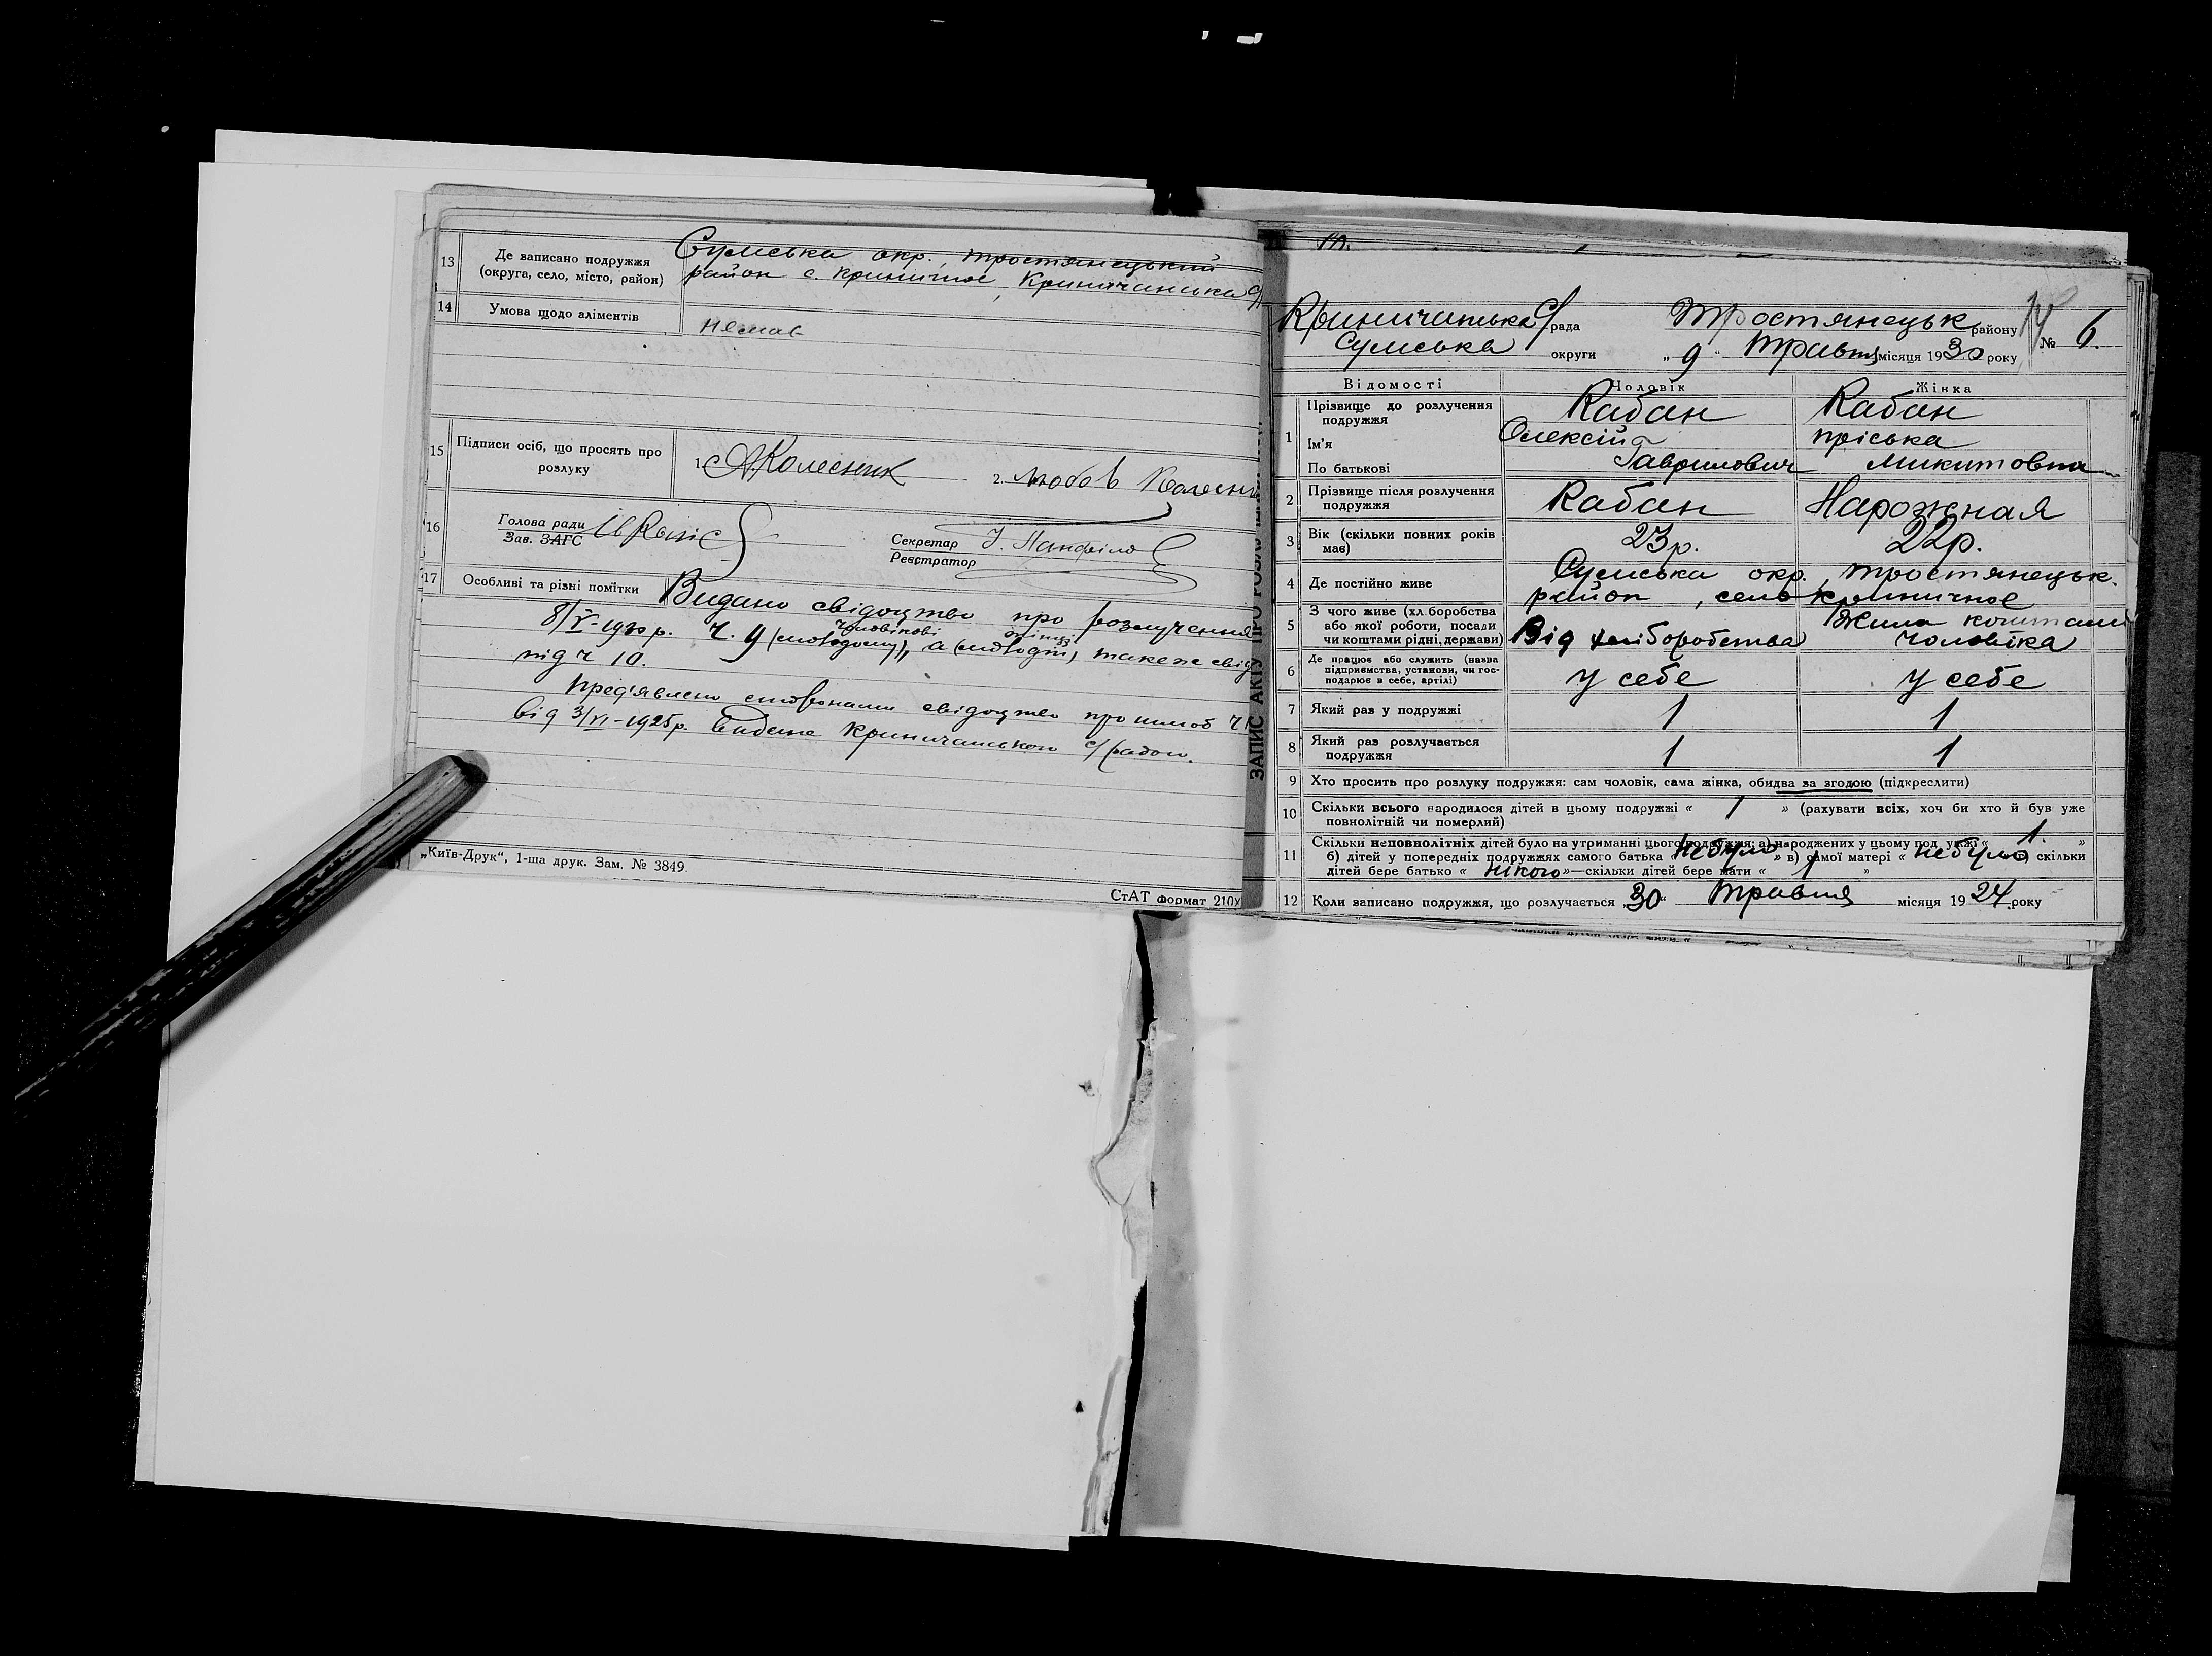 13 Де записано подружжя (округа, село, місто, район) Сумська окр., тростянецький
район с. криничне, Криничанська с/
14 Умова щодо аліментів немає
15 Підписи осіб, що просять про розлуку 1. А Колесник 2. Любов Колесни
16 Голова ради
Зав. ЗАГС
Секретар
Реєстратор
17 Особливі та різні помітки Видано свідоцтво про розлучення
чоловікові жінці
8/V-1930 р. ч. 9 (молодому), а (молодій) также свід
під ч 10.
пред'явлено сторонами свідоцтво про шлюб ч
від 3/VI-1925 р. видане Криничанською с/радою.
„Київ-Друк“, 1-ша друк. Зам. № 3849.
СтАТ формат 210х
ЗАПИС АКТУ ПРО
Криничанська с/рада Тростянецьк району № 6.
Сумська округи „9“ травня місяця 1930 року
Відомості Чоловік Жінка
1 Прізвище до розлучення подружжя Кабан Кабан
Ім'я Олексій пріська
По батькові Гаврилович Микитовна
2 Прізвище після розлучення подружжя Кабан Нарожная
3 Вік (скільки повних років має) 23 р. 22 р.
4 Де постійно живе Сумська окр., тростянецьк.
район, село криничне
5 З чого живе (хл.боробства або якої роботи, посади чи коштами рідні, держави) Від хліборобства Жила коштами чоловіка
6 Де працює або служить (назва підприємства, установи, чи господарює в себе, артілі) у себе у себе
7 Який раз у подружжі 1 1
8 Який раз розлучається подружжя 1 1
9 Хто просить про розлуку подружжя: сам чоловік, сама жінка, обидва за згодою (підкреслити)
10 Скільки всього народилося дітей в цьому подружжі « 1 » (рахувати всіх, хоч би хто й був уже
повнолітній чи померлий)
11 Скільки неповнолітніх дітей було на утриманні цього подружжя: а) народжених у цьому подружжі « 1. »
б) дітей у попередніх подружжях самого батька « не було » в) самої матері « не було » скільки
дітей бере батько « нікого »—скільки дітей бере мати « 1 »
12 Коли записано подружжя, що розлучається „30“ травня місяця 1924 року